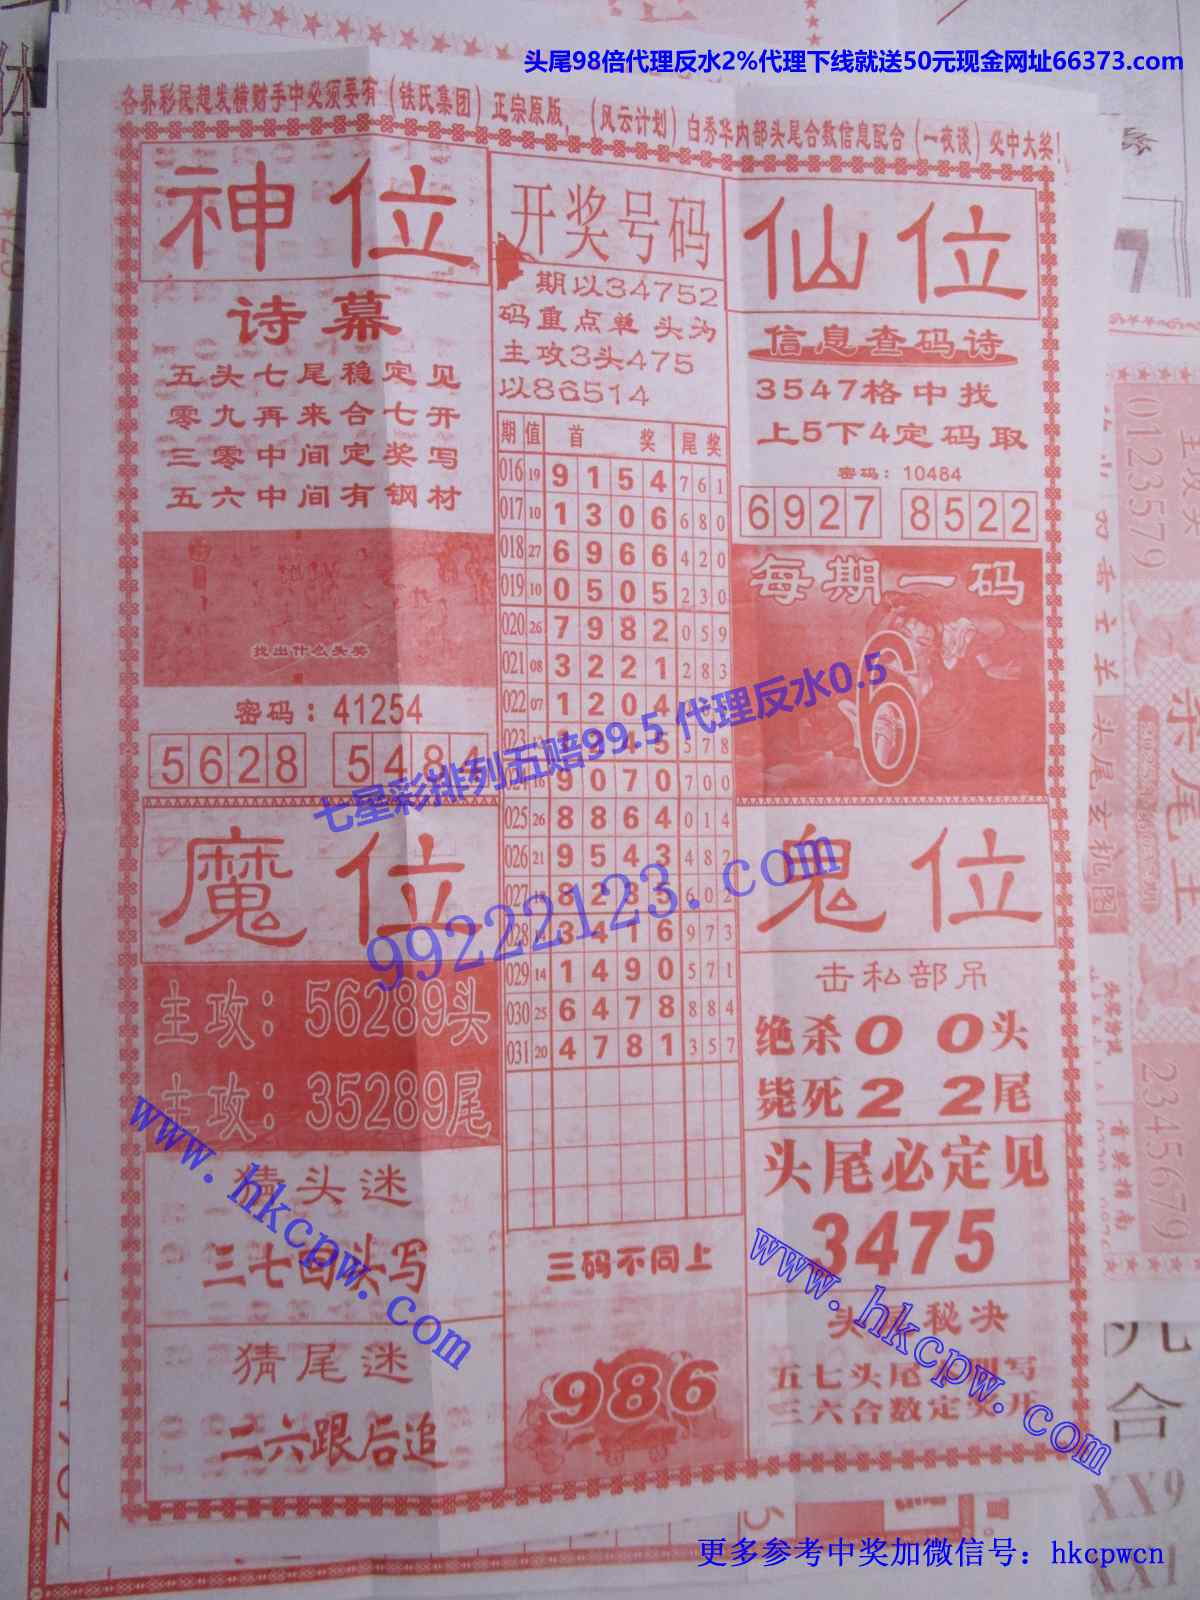 头尾98倍代理反水2%代理下线就送50元现金网址66373.com
各界彩民想发横财手中必须要有（铁氏集团）正宗原版，（风云计划）白秀华内部头尾合数信息配合（一夜谈）必中大奖！
神位
诗幕
五头七尾稳定见
零九再来合七开
三零中间定奖写
五六中间有钢材
找出什么头奖
密码：41254
5628 5484
开奖号码
期以34752
码重点单 头为
主攻3头475
以86514
期 值 首 奖 尾奖
016 19 9 1 5 4 7 6 1
017 10 1 3 0 6 6 8 0
018 27 6 9 6 6 4 2 0
019 10 0 5 0 5 2 3 0
020 26 7 9 8 2 0 5 9
021 08 3 2 2 1 2 8 3
022 07 1 2 0 4
023 4 5 5 7 8
16 9 0 7 0 7 0 0
025 26 8 8 6 4 0 1 4
026 21 9 5 4 3 4 8 2
027 8 2 3 5 6 0 2
028 14 3 4 1 6 9 7 3
029 14 1 4 9 0 5 7 1
030 25 6 4 7 8 8 8 4
031 20 4 7 8 1 3 5 7
仙位
信息查码诗
3547格中找
上5下4定码取
密码：10484
6927 8522
每期一码
6
七星彩排列五赔99.5 代理反水0.5
99222123.com
魔位
主攻：56289头
主攻：35289尾
猜头迷
三七回头写
猜尾迷
二六跟后追
三码不同上
986
鬼位
击私部吊
绝杀0 0头
毙死2 2尾
头尾必定见
3475
头尾秘决
五七头尾 写
三六合数定奖开
www.hkcpw.com
www.hkcpw.com
更多参考中奖加微信号：hkcpwcn
013579
主攻头
头尾玄机图
2345679
合
XX9